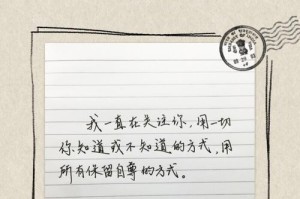 我一直在关注你,用一切
你知道或不知道的方式,用
所有保留自尊的方式。